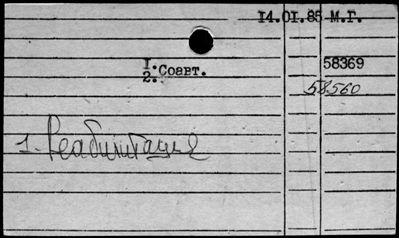 14.01.85 М.Г.
1.
2. Соавт.
58369
58560
1. Реабилитация